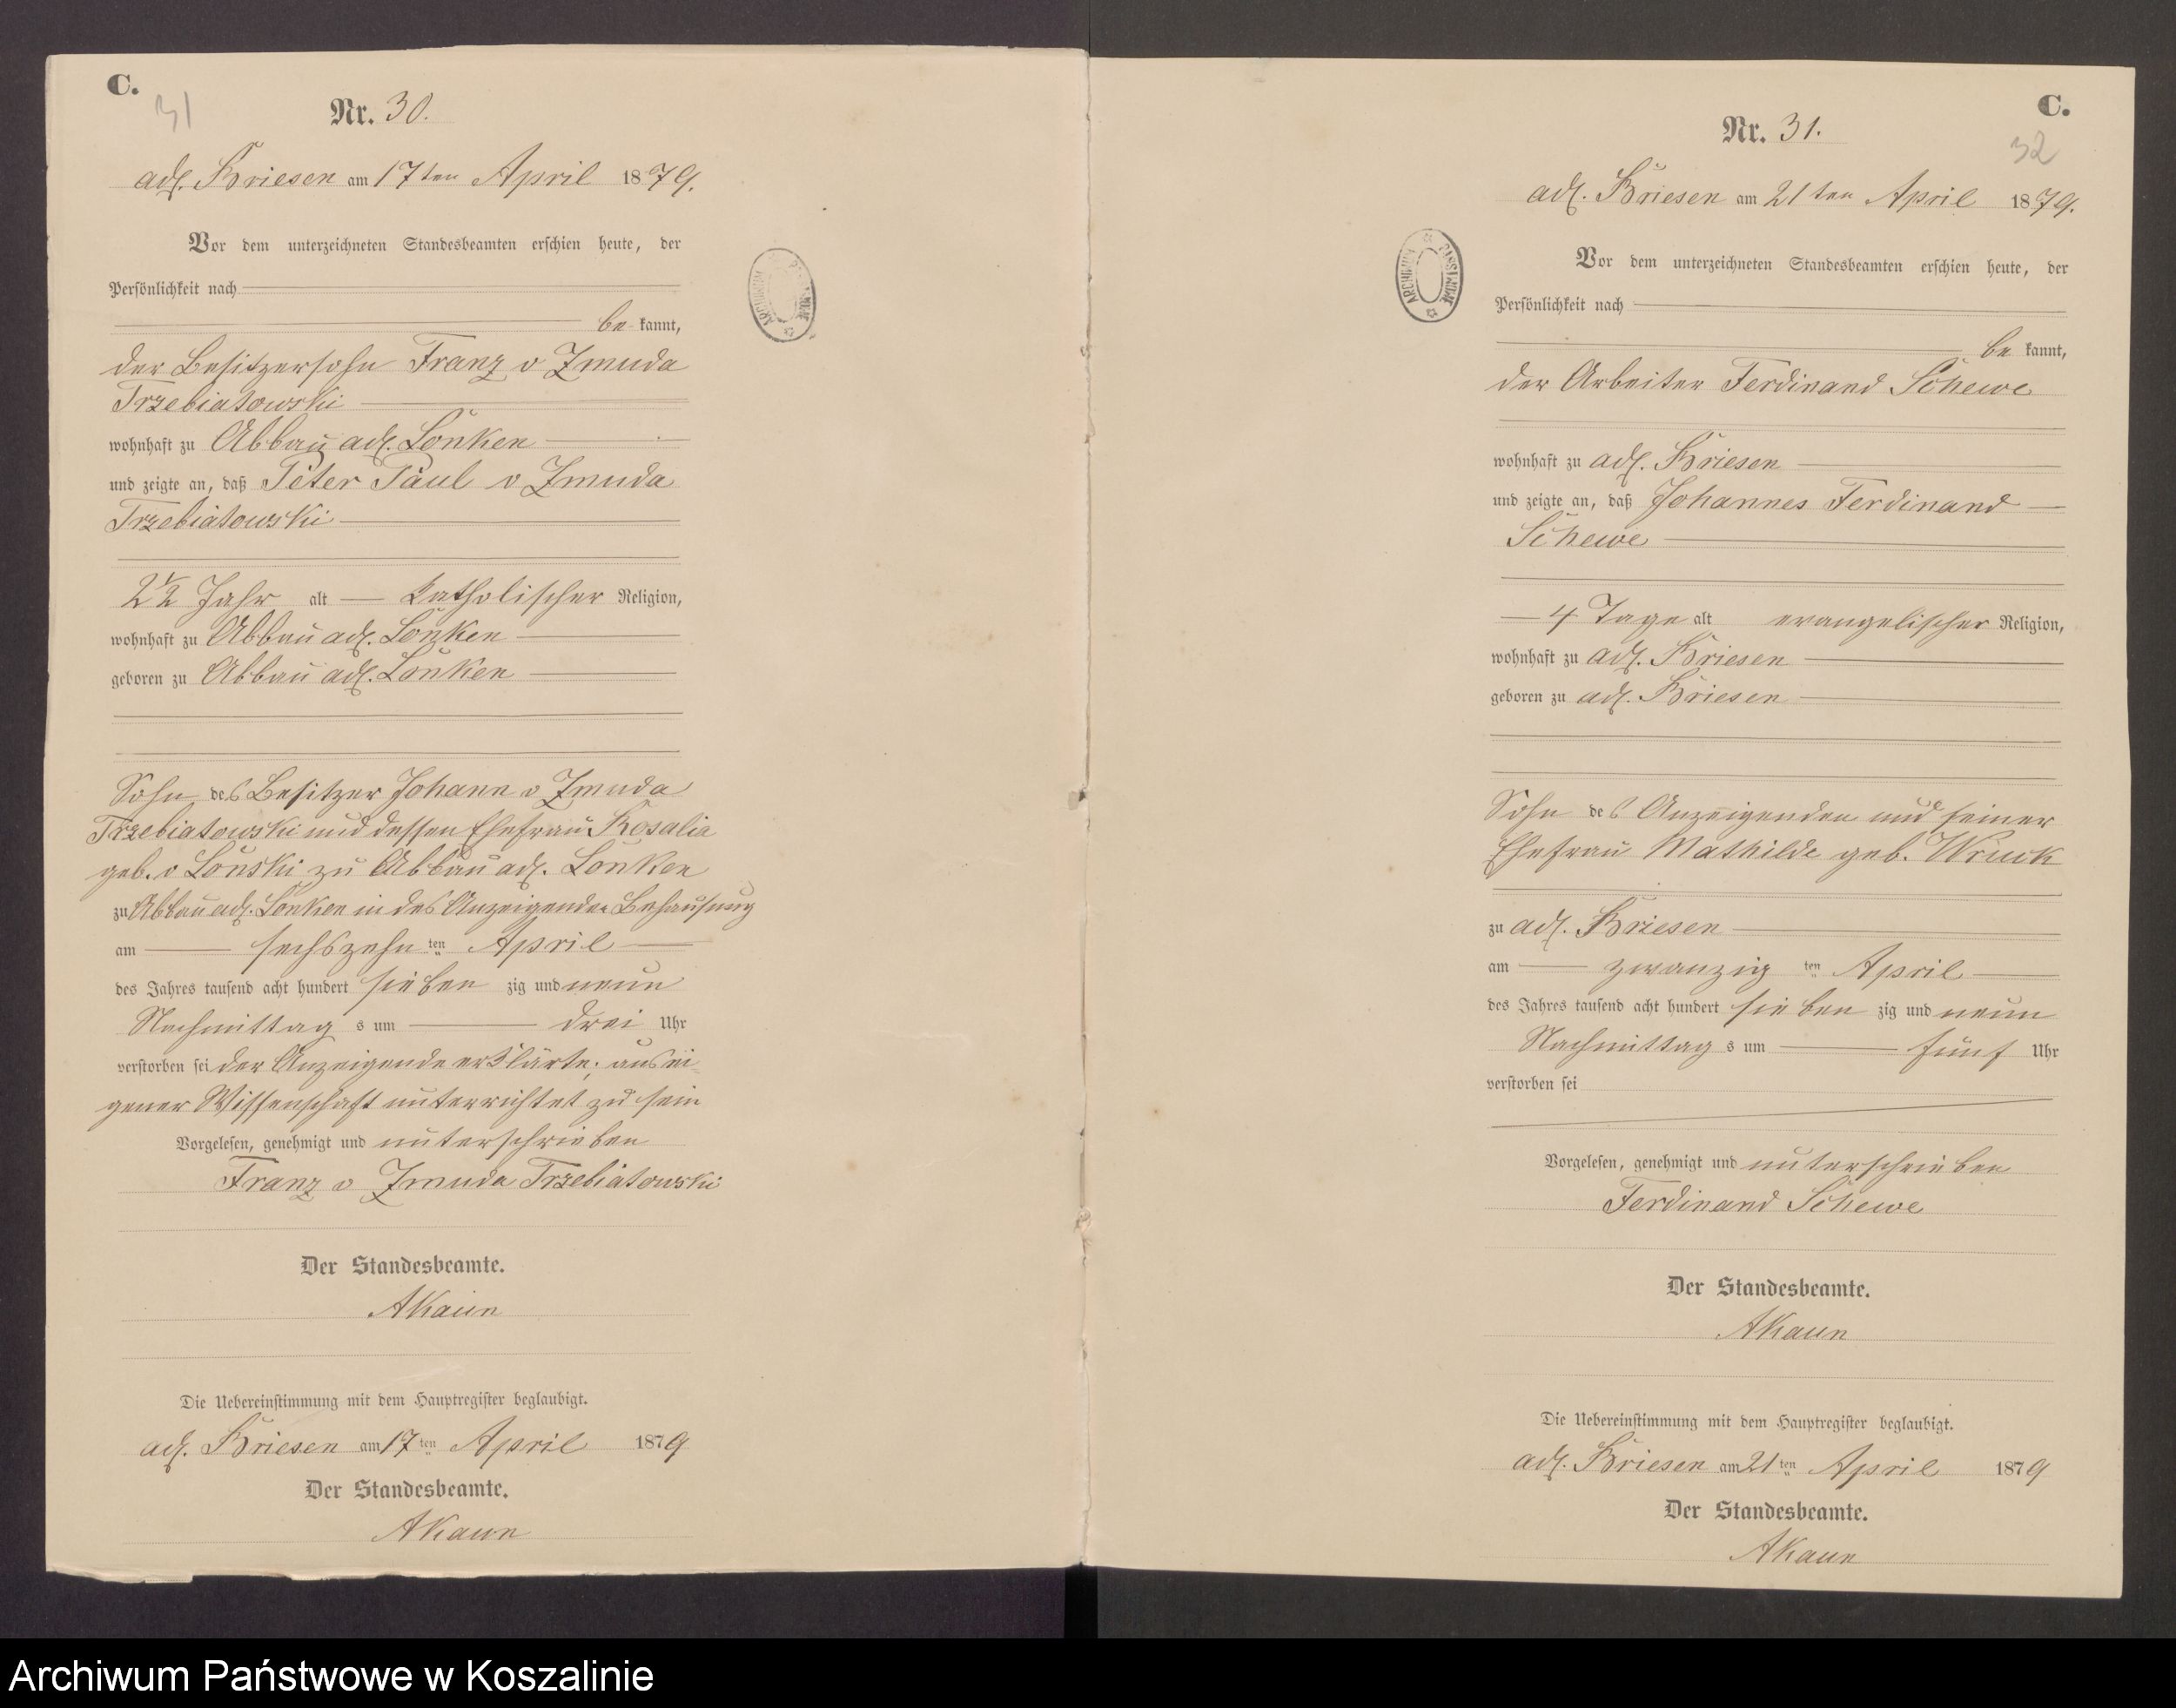 C.
31
Nr. 30.
adl. Briesen am 17ten April 1879.
Vor dem unterzeichneten Standesbeamten erschien heute, der
Persönlichkeit nach
be kannt,
der Besitzersohn Franz v Zmuda
Trzebiatowski
wohnhaft zu Abbau adl. Lonken
und zeigte an, daß Peter Paul v Zmuda
Trzebiatowski
2 1/2 Jahr alt katholischer Religion,
wohnhaft zu Abbau adl. Lonken
geboren zu Abbau adl. Lonken
Sohn des Besitzer Johann v Zmuda
Trzebiatowski und dessen Ehefrau Rosalia
geb. v Lonski zu Abbau adl. Lonken
zu Abbau adl. Lonken in des Anzeigenden Behausung
am sechszehn ten April
des Jahres tausend acht hundert sieben zig und neun
Nachmittag s um drei Uhr
verstorben sei der Anzeigende erklärte; aus ei
gener Wissenschaft unterrichtet zu sein
Vorgelesen, genehmigt und unterschrieben
Franz v Zmuda Trzebiatowski
Der Standesbeamte.
AKaun
Die Uebereinstimmung mit dem Hauptregister beglaubigt.
adl. Briesen am 17 ten April 1879
Der Standesbeamte.
AKaun
ARCHIWUM PAŃSTWOWE
C.
32
Nr. 31.
adl. Briesen am 21ten April 1879.
Vor dem unterzeichneten Standesbeamten erschien heute, der
Persönlichkeit nach
be kannt,
der Arbeiter Ferdinand Schewe
wohnhaft zu adl. Briesen
und zeigte an, daß Johannes Ferdinand
Schewe
4 Tage alt evangelischer Religion,
wohnhaft zu adl. Briesen
geboren zu adl. Briesen
Sohn des Anzeigenden und seiner
Ehefrau Mathilde geb. Wruck
zu adl. Briesen
am zwanzig ten April
des Jahres tausend acht hundert sieben zig und neun
Nachmittag s um fünf Uhr
verstorben sei
Vorgelesen, genehmigt und unterschrieben
Ferdinand Schewe
Der Standesbeamte.
AKaun
Die Uebereinstimmung mit dem Hauptregister beglaubigt.
adl. Briesen am 21 ten April 1879
Der Standesbeamte.
AKaun
ARCHIWUM PAŃSTWOWE
Archiwum Państwowe w Koszalinie